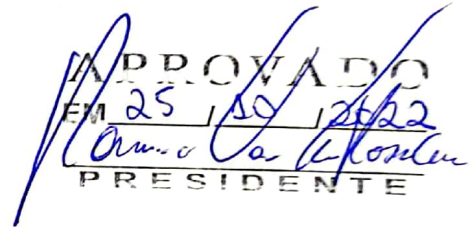 APROVADO
EM 25 / 10 / 2022
PRESIDENTE